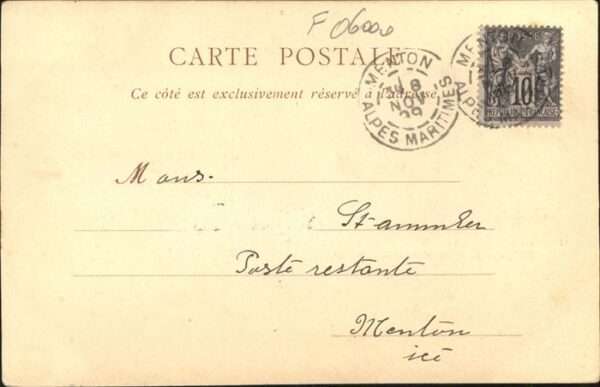 F 06000
CARTE POSTALE
Ce côté est exclusivement réservé à l'adresse
MENTON
8
NOV
99
ALPES MARITIMES
MENTON
ALPES
10
Mons.
Stammler
Poste restante
Menton
ici